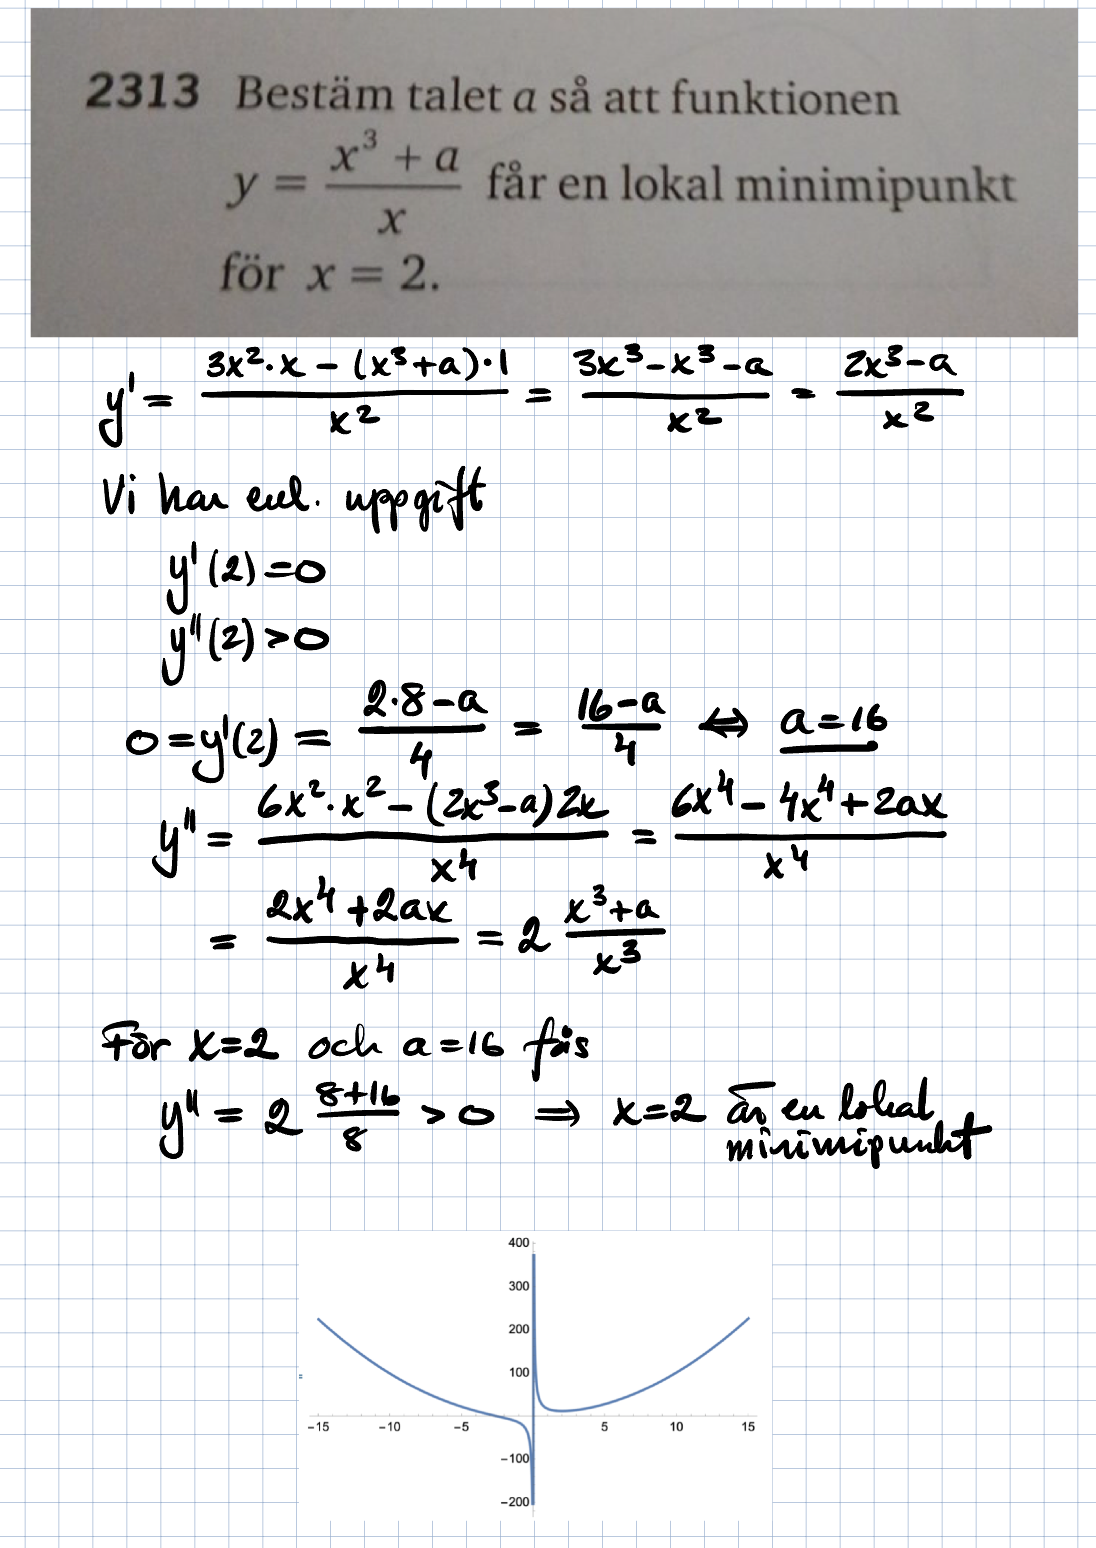 2313 Bestäm talet a så att funktionen
y = (x³ + a)/x får en lokal minimipunkt
för x = 2.
y' = (3x²·x - (x³+a)·1)/x² = (3x³-x³-a)/x² = (2x³-a)/x²
Vi har enl. uppgift
y'(2)=0
y''(2)>0
0=y'(2) = (2·8-a)/4 = (16-a)/4 ⇔ a=16
y'' = (6x²·x² - (2x³-a)2x)/x⁴ = (6x⁴ - 4x⁴+2ax)/x⁴
= (2x⁴+2ax)/x⁴ = 2 (x³+a)/x³
För x=2 och a=16 fås
y'' = 2 (8+16)/8 > 0 ⇒ x=2 är en lokal
minimipunkt
400
300
200
100
-15 -10 -5 5 10 15
-100
-200